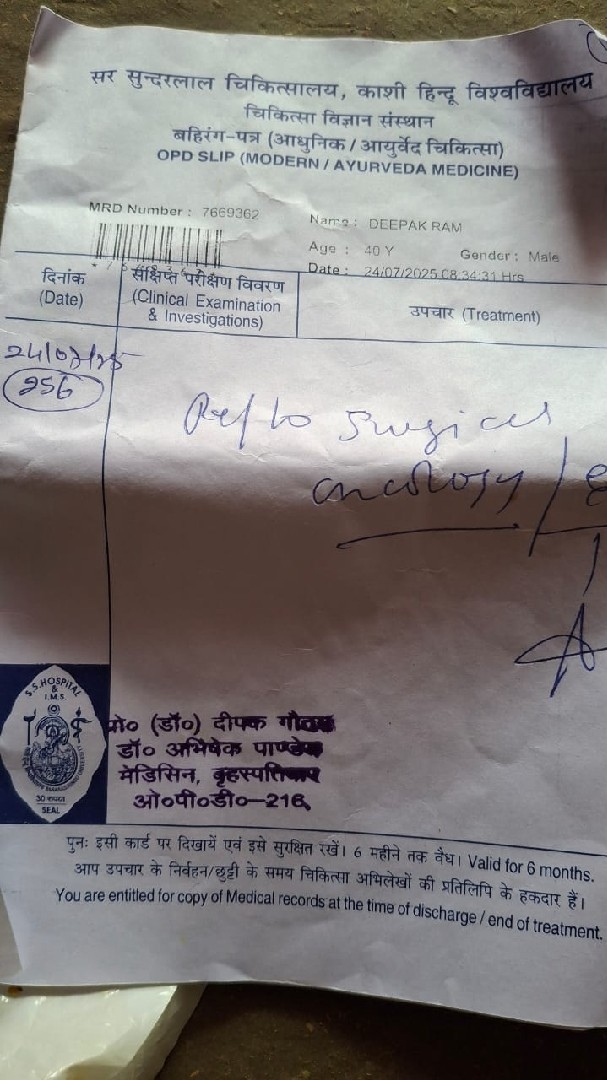 सर सुन्दरलाल चिकित्सालय, काशी हिन्दू विश्वविद्यालय
चिकित्सा विज्ञान संस्थान
बहिरंग-पत्र (आधुनिक / आयुर्वेद चिकित्सा)
OPD SLIP (MODERN / AYURVEDA MEDICINE)
MRD Number : 7669362
Name : DEEPAK RAM
Age : 40 Y Gender : Male
Date : 24/07/2025 08:34:31 Hrs
दिनांक
(Date)
संक्षिप्त परीक्षण विवरण
(Clinical Examination
& Investigations)
उपचार (Treatment)
24/07/25
256
Ref to Surgical
oncology /
S.S. HOSPITAL
&
I.M.S.
SEAL
प्रो० (डॉ०) दीपक गौतम
डॉ० अभिषेक पाण्डेय
मेडिसिन, बृहस्पतिवार
ओ०पी०डी०-216
पुनः इसी कार्ड पर दिखायें एवं इसे सुरक्षित रखें। 6 महीने तक वैध। Valid for 6 months.
आप उपचार के निर्वहन/छुट्टी के समय चिकित्सा अभिलेखों की प्रतिलिपि के हकदार हैं।
You are entitled for copy of Medical records at the time of discharge / end of treatment.